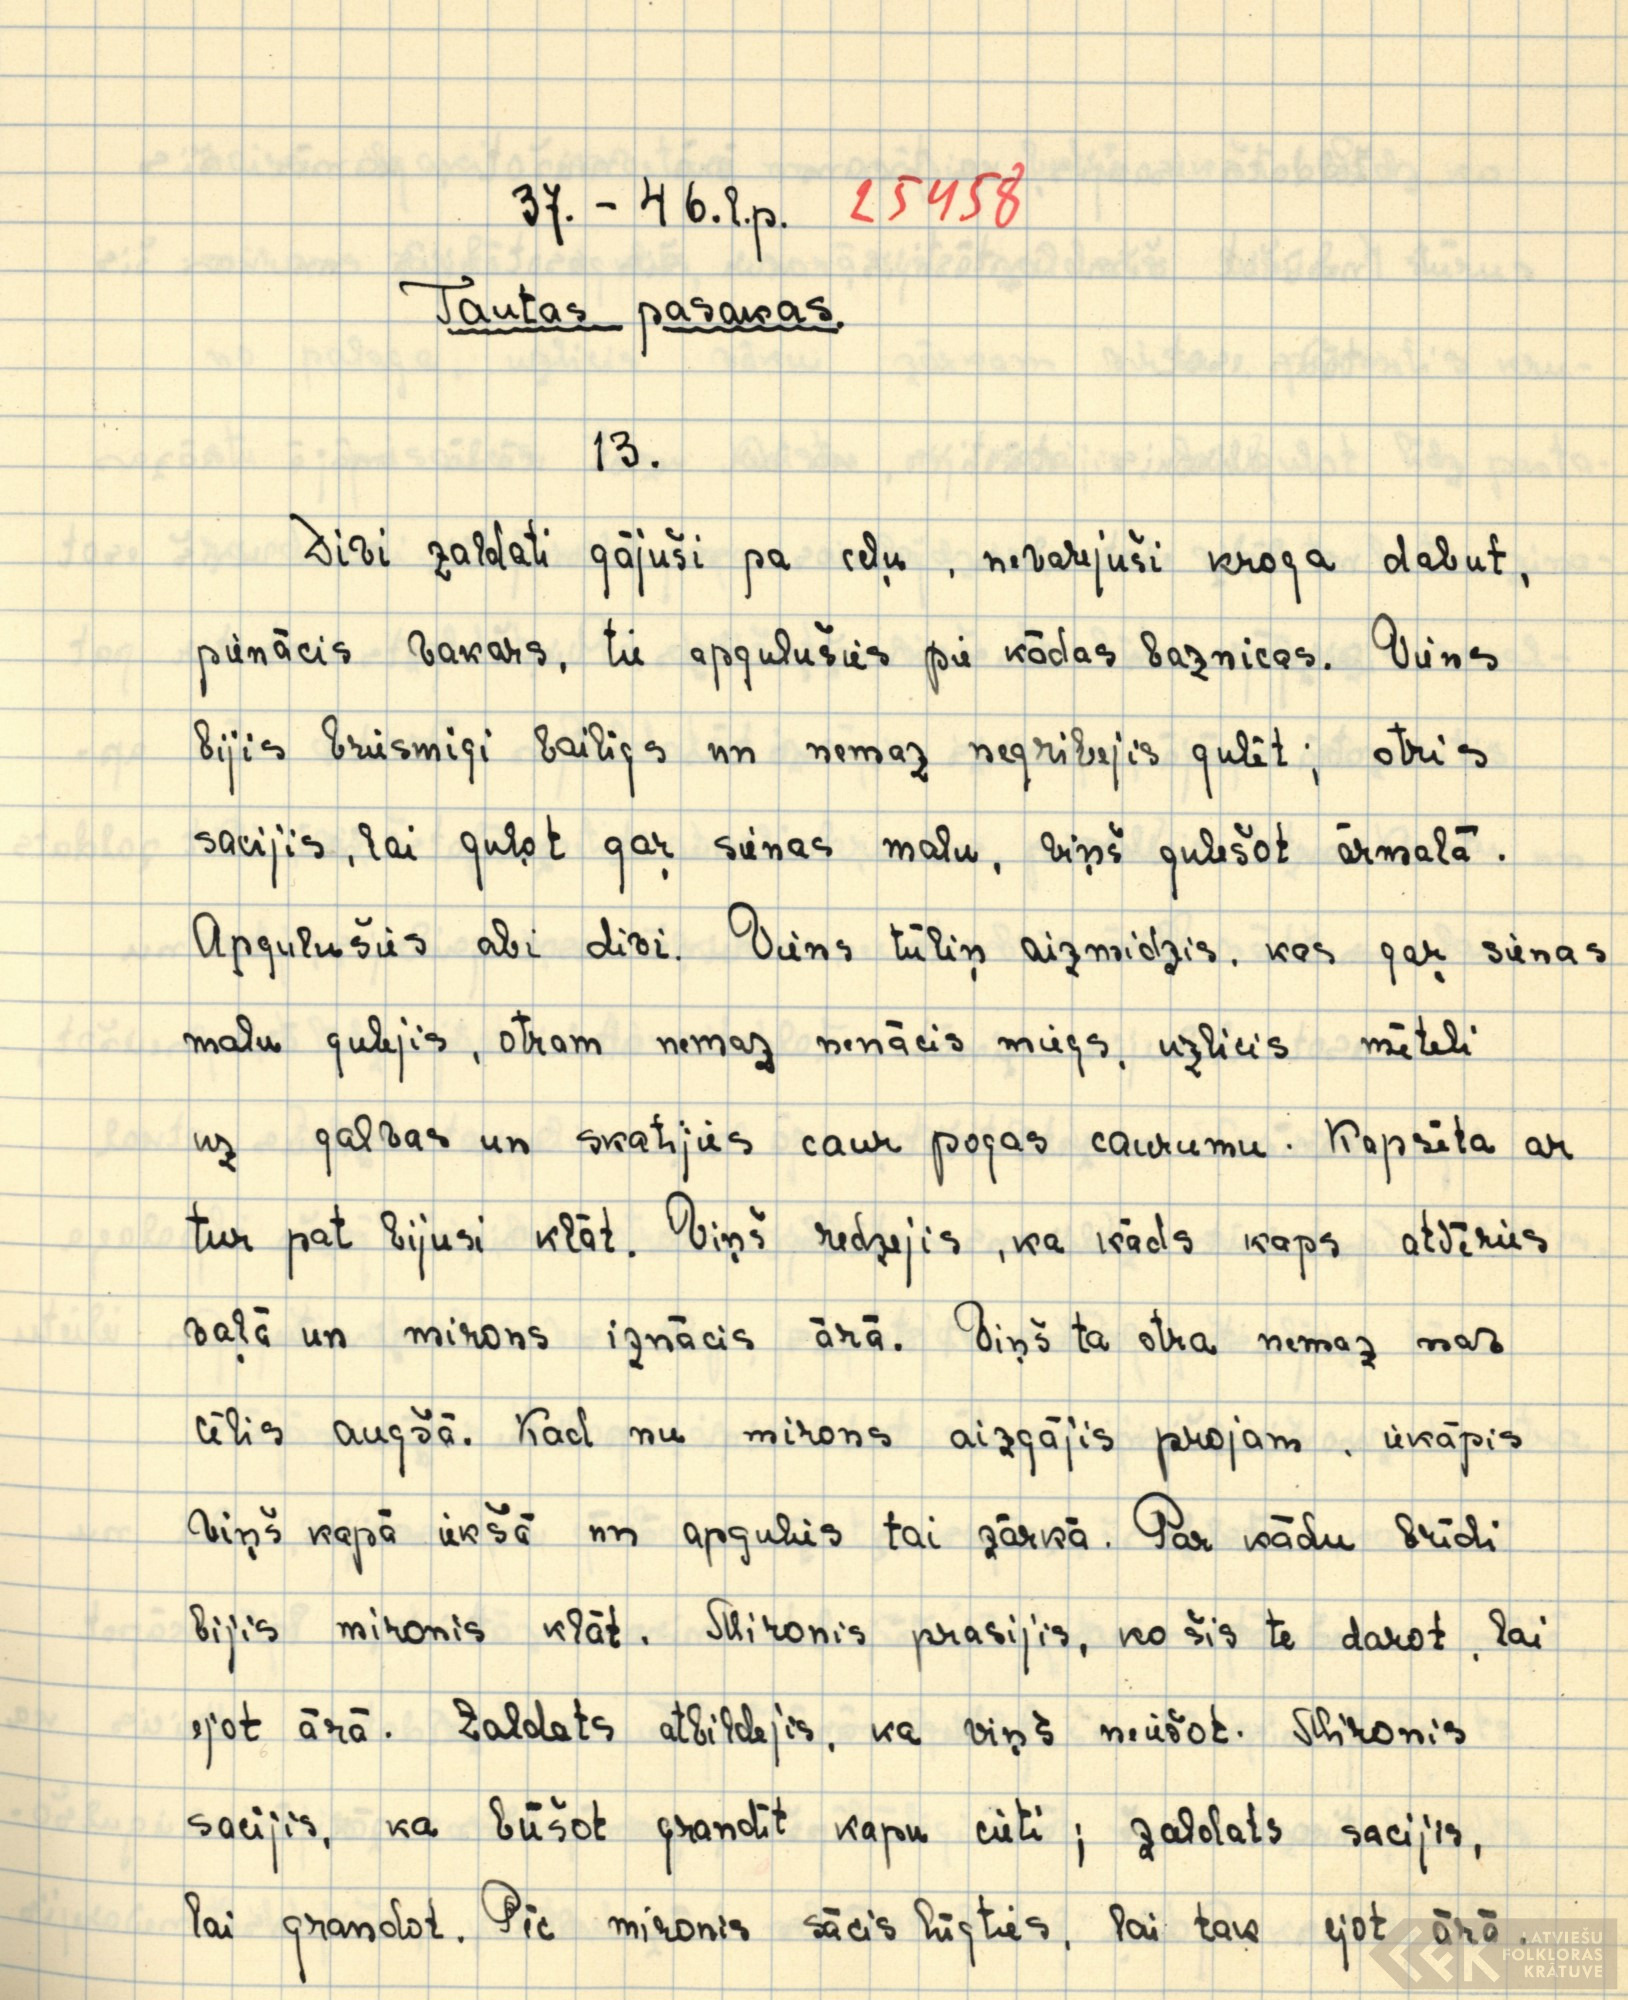 37. - 46. l.p. 25458
Tautas pasakas.
13.
Divi zaldati gājuši pa ceļu, nevarejuši kroga dabut,
pienācis vakars, tie apgulušies pie kādas baznicas. Viens
bijis briesmigi bailigs un nemaz negribejis gulēt; otris
sacijis, lai guļot gaŗ sienas malu, viņš gulešot ārmalā.
Apgulušies abi divi. Viens tūliņ aizmidzis, kas gaŗ sienas
malu gulejis, otram nemaz nenācis miegs, uzlicis mēteli
uz galvas un skatijies caur pogas caurumu. Kapsēta ar
tur pat bijusi klāt. Viņš redzejis, ka kāds kaps atvēries
vaļā un mirons iznācis ārā. Viņš ta otra nemaz nav
cēlis augšā. Kad nu mirons aizgājis projam, iekāpis
viņš kapā iekšā un apgulies tai zārkā. Par kādu brīdi
bijis mironis klāt. Mironis prasijis, ko šis te darot, lai
ejot ārā. Zaldats atbildejis, ka viņš neiešot. Mironis
sacijis, ka būšot grandīt kapu cieti; zaldats sacijis,
lai grandot. Pēc mironis sācis lūgties, lai tak ejot ārā.
LATVIEŠU
FOLKLORAS
KRĀTUVE